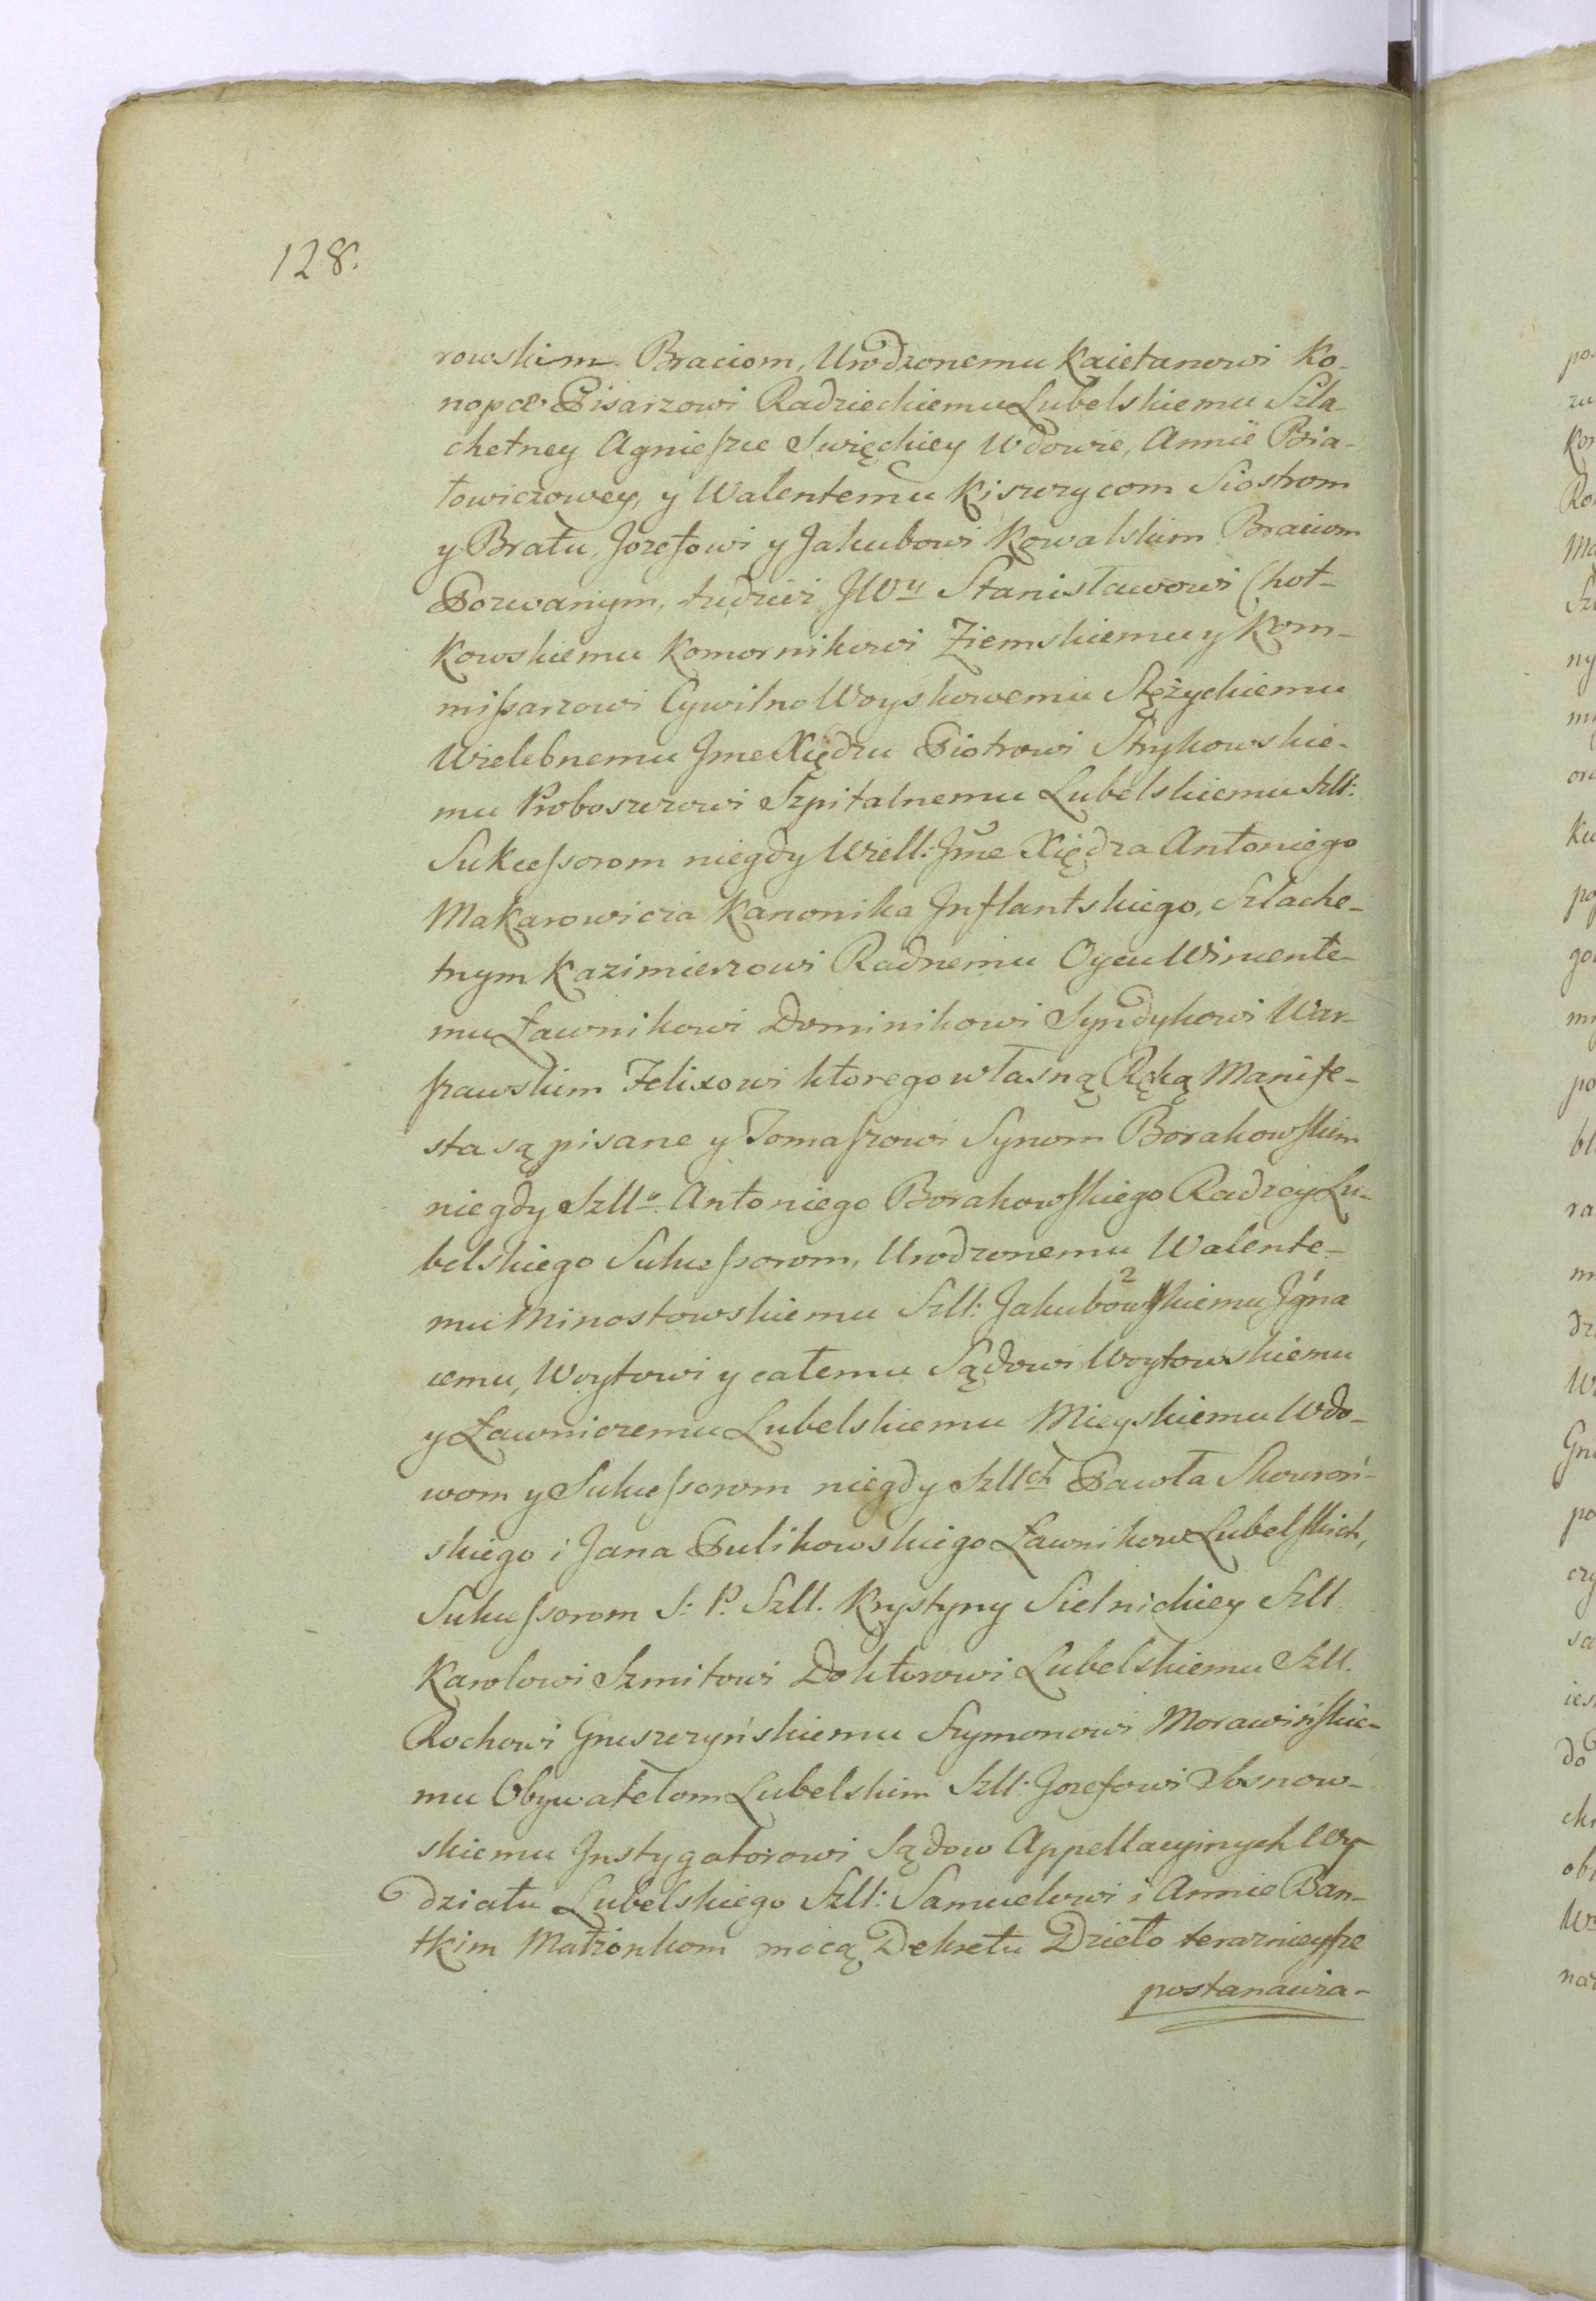 128.
rowskim Braciom, Urodzonemu Kaietanowi Ko-
nopce Pisarzowi Radzieckiemu Lubelskiemu Szla-
chetney Agnieſzce Swięckiey Wdowie, Annie Bia-
łowiczowey, y Walentemu Kiszczycom Siostrom
y Bratu, Jozefowi y Jakubowi Kowalskim Braciom
Pozwanym, tudzież JWu Stanisławowi Chot-
kowskiemu Komornikowi Ziemskiemu y Kom-
miſsarzowi Cywilno Woyskowemu Stężyckiemu
Wielebnemu Jme Xiędzu Piotrowi Strykowskie-
mu Proboszczowi Szpitalnemu Lubelskiemu Szll:
Sukceſsorom niegdy Wiell: Jme Xiędza Antoniego
Makarowicza Kanonika Jnflantskiego, Szlache-
tnym Kazimierzowi Radnemu Oycu Wincente-
mu Ławnikowi Dominikowi Syndykowi War-
ſzawskim Felixowi ktorego własną Ręką Manife-
sta są pisane y Tomaſzowi Synom Borakowſkim
niegdy Szllo Antoniego Borakowſkiego Radzcy Lu-
belskiego Sukceſsorom, Urodzonemu Walente-
mu Minostowskiemu Szll: Jakubowſkiemu 2 Jgna
cemu, Woytowi y całemu Sądowi Woytowskiemu
y Ławniczemu Lubelskiemu Mieyskiemu Wdo-
wom y Sukceſsorom niegdy Szllch Pawła Skowroń-
skiego i Jana Pulikowskiego Ławnikow Lubelſkich,
Sukceſsorom S: P. Szll. Krystyny Sielnickiey Szll.
Karolowi Szmitowi Doktorowi Lubelskiemu Szll.
Rochowi Gruszczyńskiemu Szymonowi Morawińſkie-
mu Obywatelom Lubelskim Szll: Jozefowi Sosnow-
skiemu Jnstygatorowi Sądow Appellacyinych Wy-
działu Lubelskiego Szll: Samuelowi i Annie Ban-
tkim Małżonkom mocą Dekretu Dzieło teraznieyſze
postanawia-